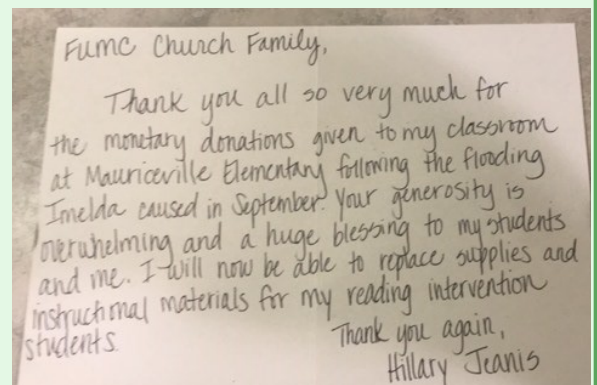 FUMC Church Family,
Thank you all so very much for
the monetary donations given to my classroom
at Mauriceville Elementary following the flooding
Imelda caused in September. Your generosity is
overwhelming and a huge blessing to my students
and me. I will now be able to replace supplies and
instructional materials for my reading intervention
students.
Thank you again,
Hillary Jeanis